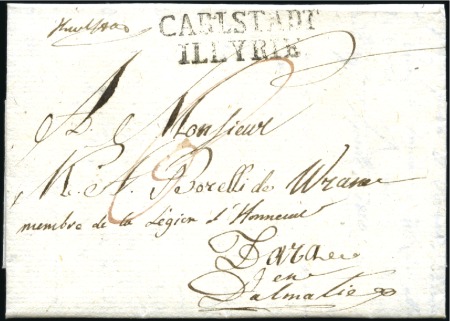 CARLSTADT
ILLYRIE
A Monsieur
M. A. Borelli de Wrana
membre de la Légion d'Honneur
Zara
en
Dalmatie